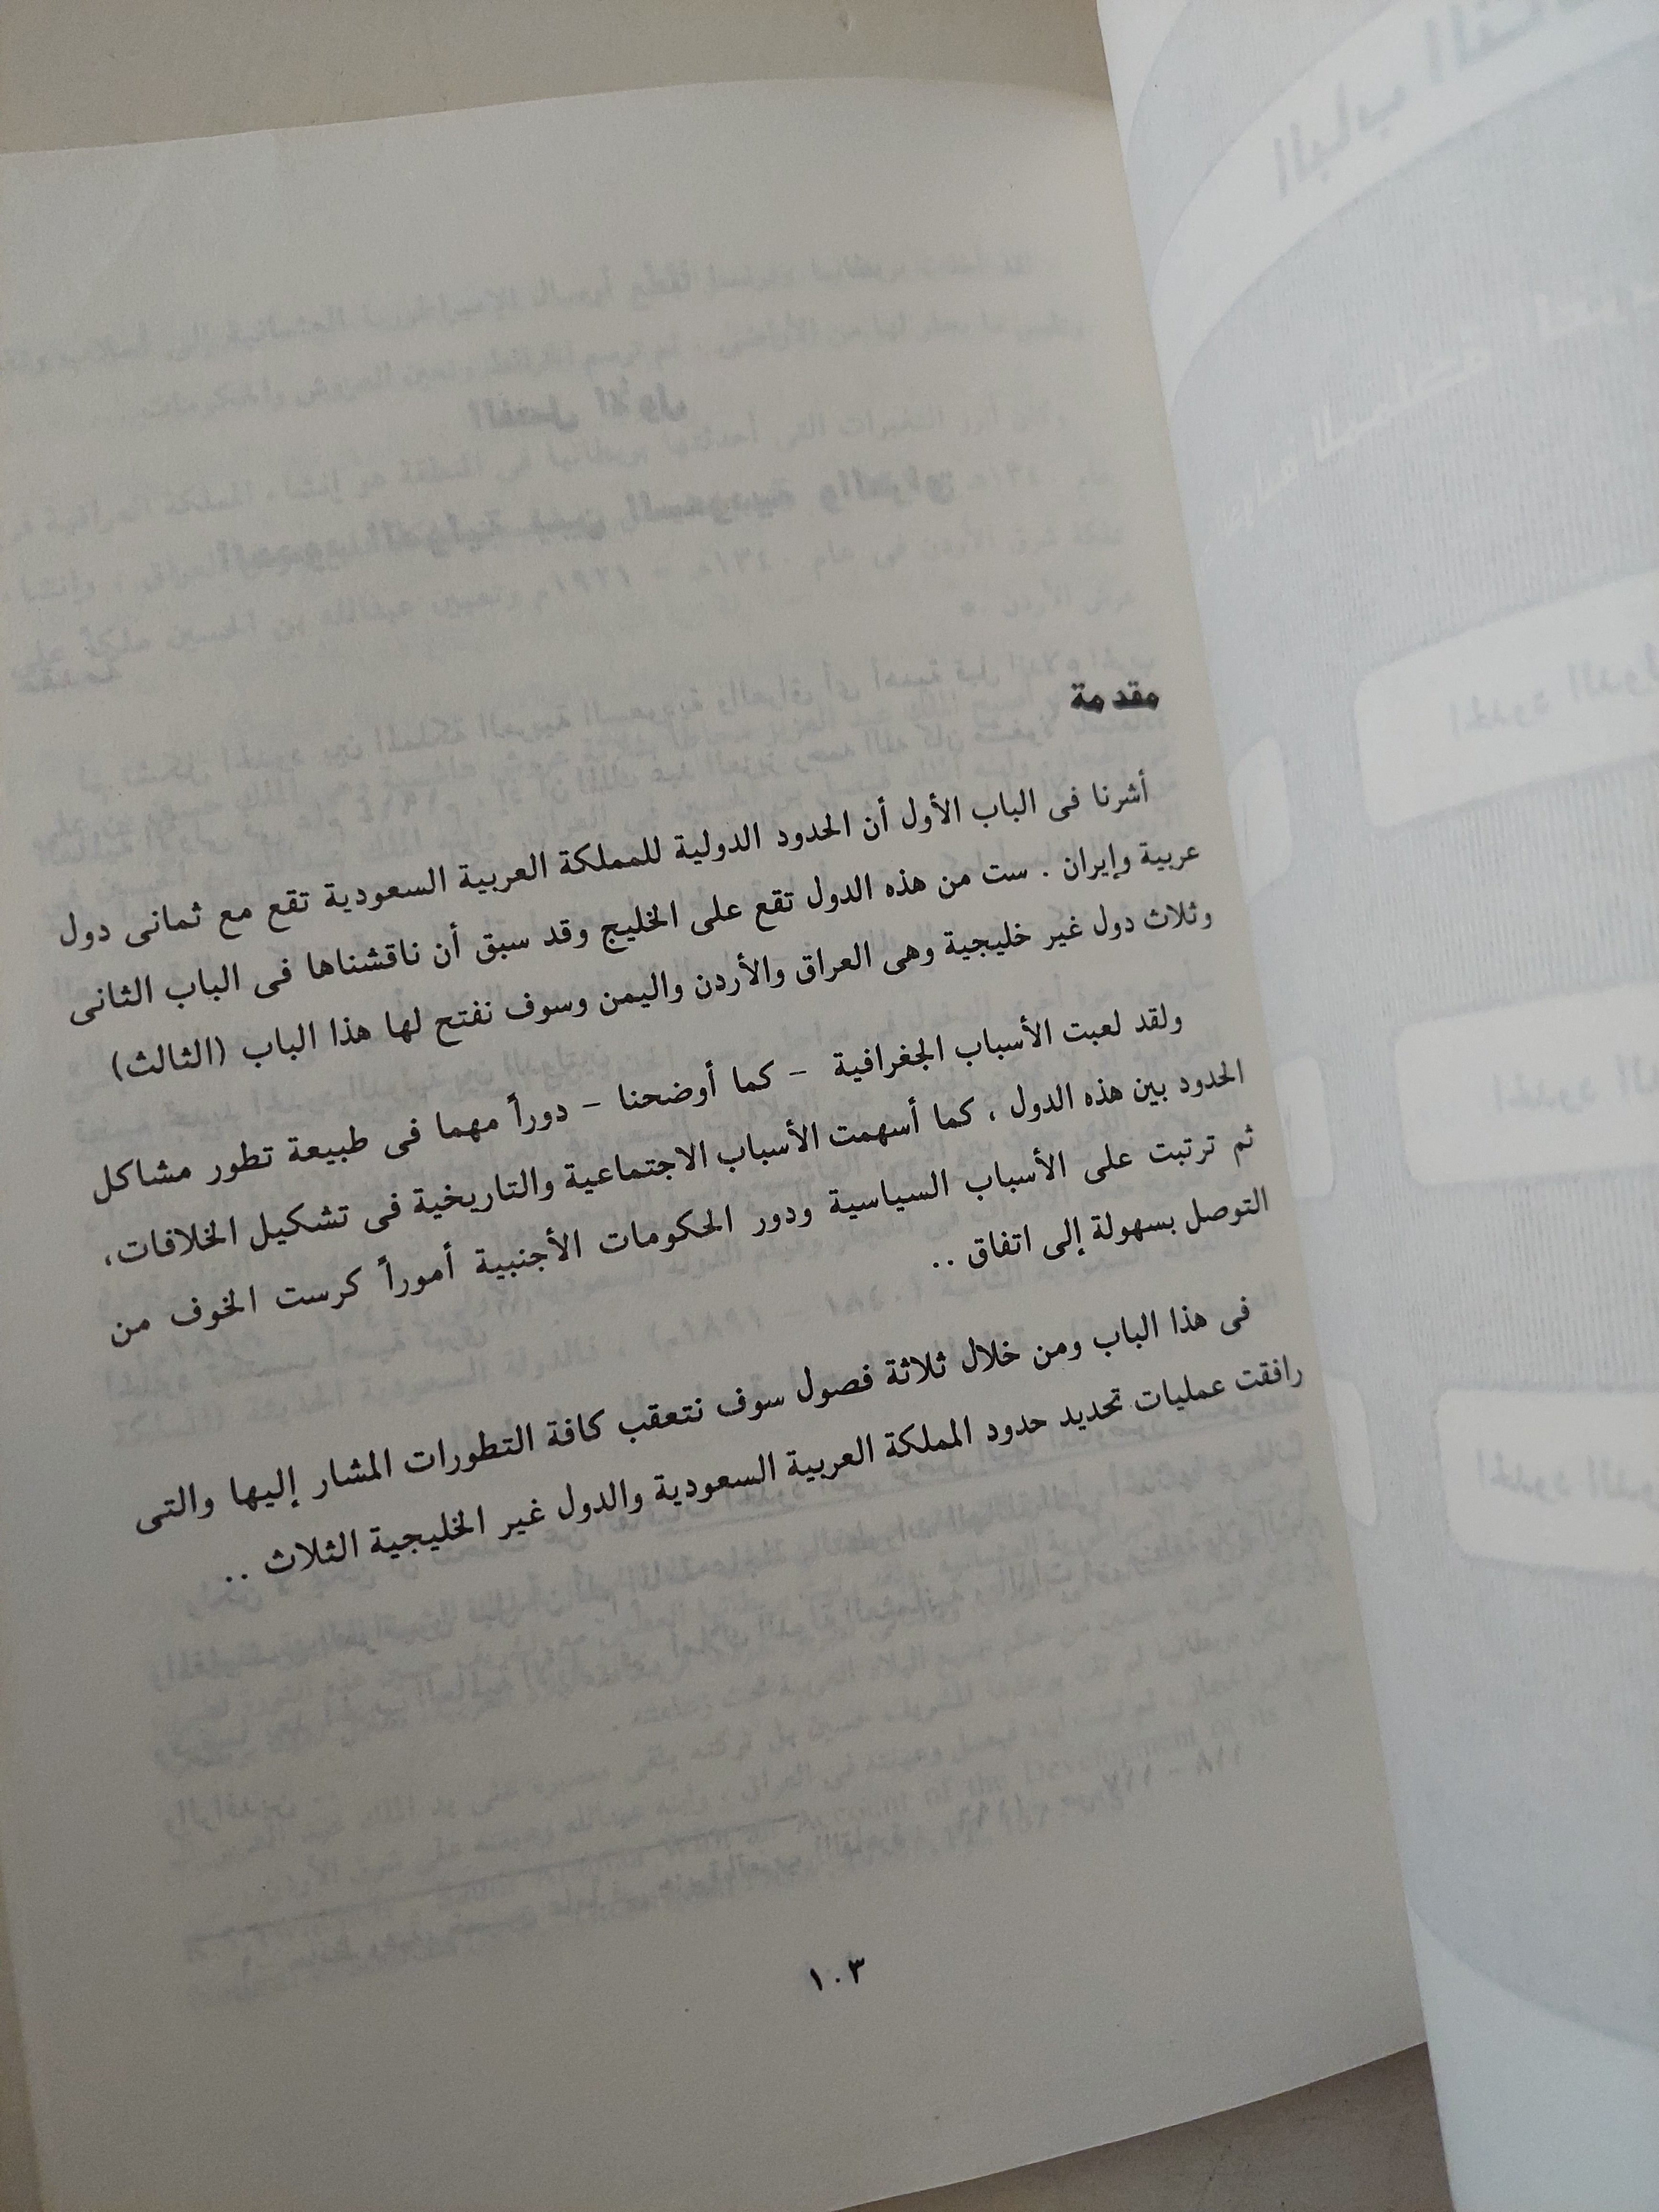 مقدمة
أشرنا فى الباب الأول أن الحدود الدولية للمملكة العربية السعودية تقع مع ثمانى دول
عربية وإيران . ست من هذه الدول تقع على الخليج وقد سبق أن ناقشناها فى الباب الثانى
وثلاث دول غير خليجية وهى العراق والأردن واليمن وسوف نفتح لها هذا الباب (الثالث)
ولقد لعبت الأسباب الجغرافية – كما أوضحنا – دوراً مهما فى طبيعة تطور مشاكل
الحدود بين هذه الدول ، كما أسهمت الأسباب الاجتماعية والتاريخية فى تشكيل الخلافات،
ثم ترتبت على الأسباب السياسية ودور الحكومات الأجنبية أموراً كرست الخوف من
التوصل بسهولة إلى اتفاق ..
فى هذا الباب ومن خلال ثلاثة فصول سوف نتعقب كافة التطورات المشار إليها والتى
رافقت عمليات تحديد حدود المملكة العربية السعودية والدول غير الخليجية الثلاث ..
١٠٣